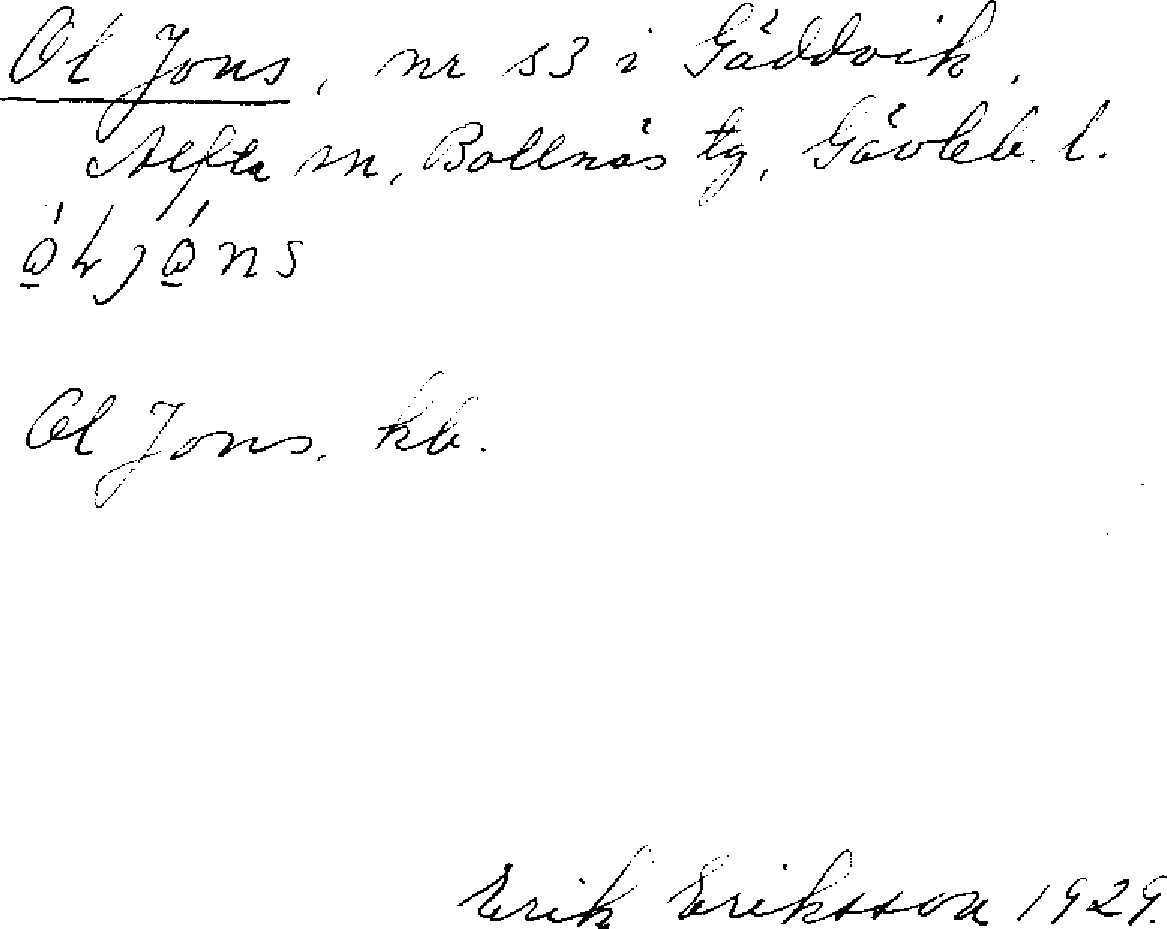 Ol Jons, nr 53 i Gäddvik,
Alfta sn, Bollnäs tg, Gävleb. l.
Ol Jons. kb.
Erik Eriksson 1929.